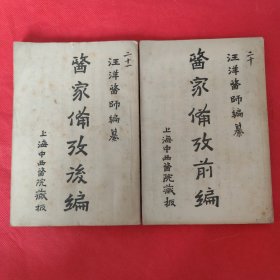 二十
汪洋醫師編纂
醫家備攷前編
上海中西醫院藏板
二十一
汪洋醫師編纂
醫家備攷後編
上海中西醫院藏板